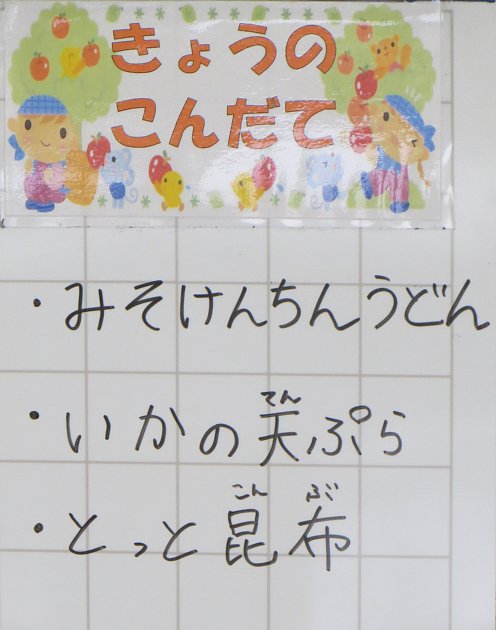 きょうの
こんだて
・みそけんちんうどん
てん
・いかの天ぷら
こん ぶ
・とっと昆布